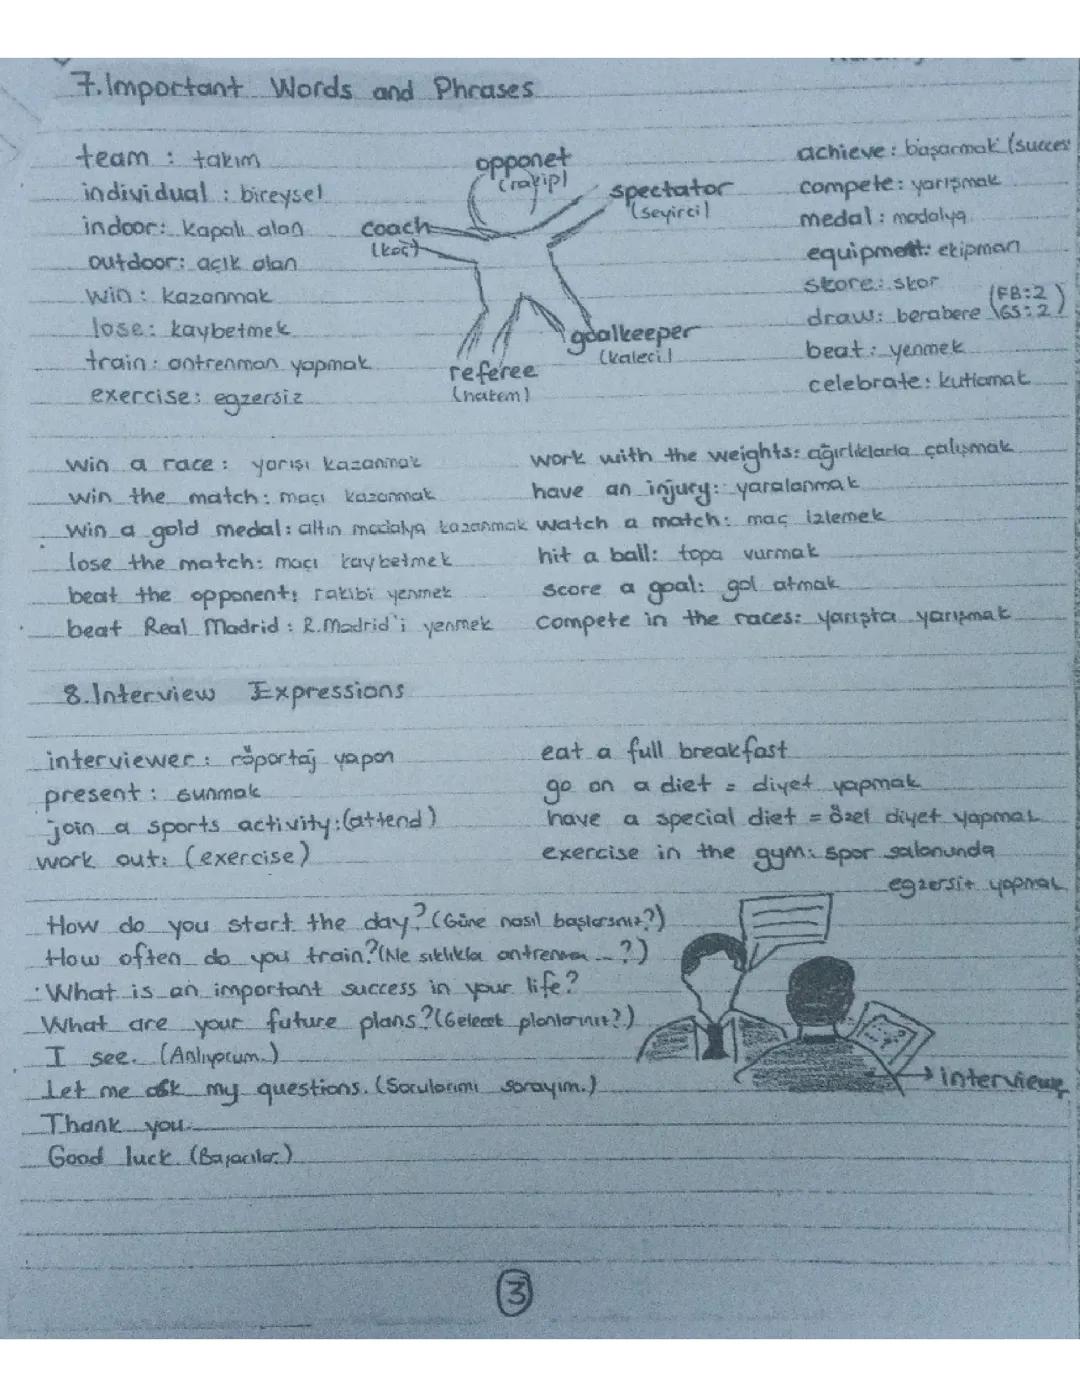 7.Important Words and Phrases
team : takım
individual : bireysel
indoor: kapalı alan
outdoor: açık alan
win : kazanmak
lose: kaybetmek
train: antrenman yapmak
exercise: egzersiz
opponet
(rakip)
spectator
(seyirci)
coach
(koç)
goalkeeper
(kaleci)
referee
(hakem)
achieve: başarmak (succes
compete: yarışmak
medal: madalya
equipment: ekipman
skore: skor
draw: berabere (FB:2
GS:2)
beat: yenmek
celebrate: kutlamak
win a race: yarışı kazanmak
win the match: maçı kazanmak
win a gold medal: altın madalya kazanmak
lose the match: maçı kaybetmek
beat the opponent: rakibi yenmek
beat Real Madrid: R.Madrid'i yenmek
work with the weights: ağırlıklarla çalışmak
have an injury: yaralanmak
watch a match: maç izlemek
hit a ball: topa vurmak
score a goal: gol atmak
compete in the races: yarışta yarışmak
8.Interview Expressions
interviewer: röportaj yapan
present: sunmak
join a sports activity:(attend)
work out: (exercise)
eat a full breakfast
go on a diet = diyet yapmak
have a special diet = özel diyet yapmak
exercise in the gym: spor salonunda
egzersiz yapmak
How do you start the day? (Güne nasıl başlarsınız?)
How often do you train? (Ne sıklıkla antrenman ...?)
What is an important success in your life?
What are your future plans? (Gelecek planlarınız?)
I see. (Anlıyorum.)
Let me ask my questions. (Sorularımı sorayım.)
Thank you.
Good luck. (Başarılar.)
interviewer
3